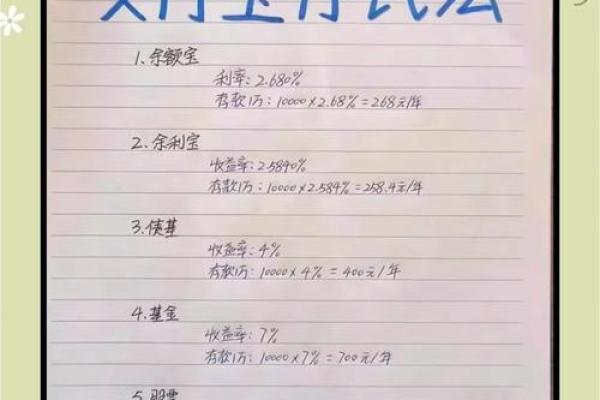 支付宝存钱法
1.余额宝
利率:2.680%
存款1万:10000×2.68%=268元/年
2.余利宝
收益率:2.5840%
存款1万:10000×2.584%=258.4元/年
3.债基
收益率:4%
存款1万:10000×4%=400元/年
4.基金
收益率:7%
存款1万:10000×7%=700元/年
5.股票